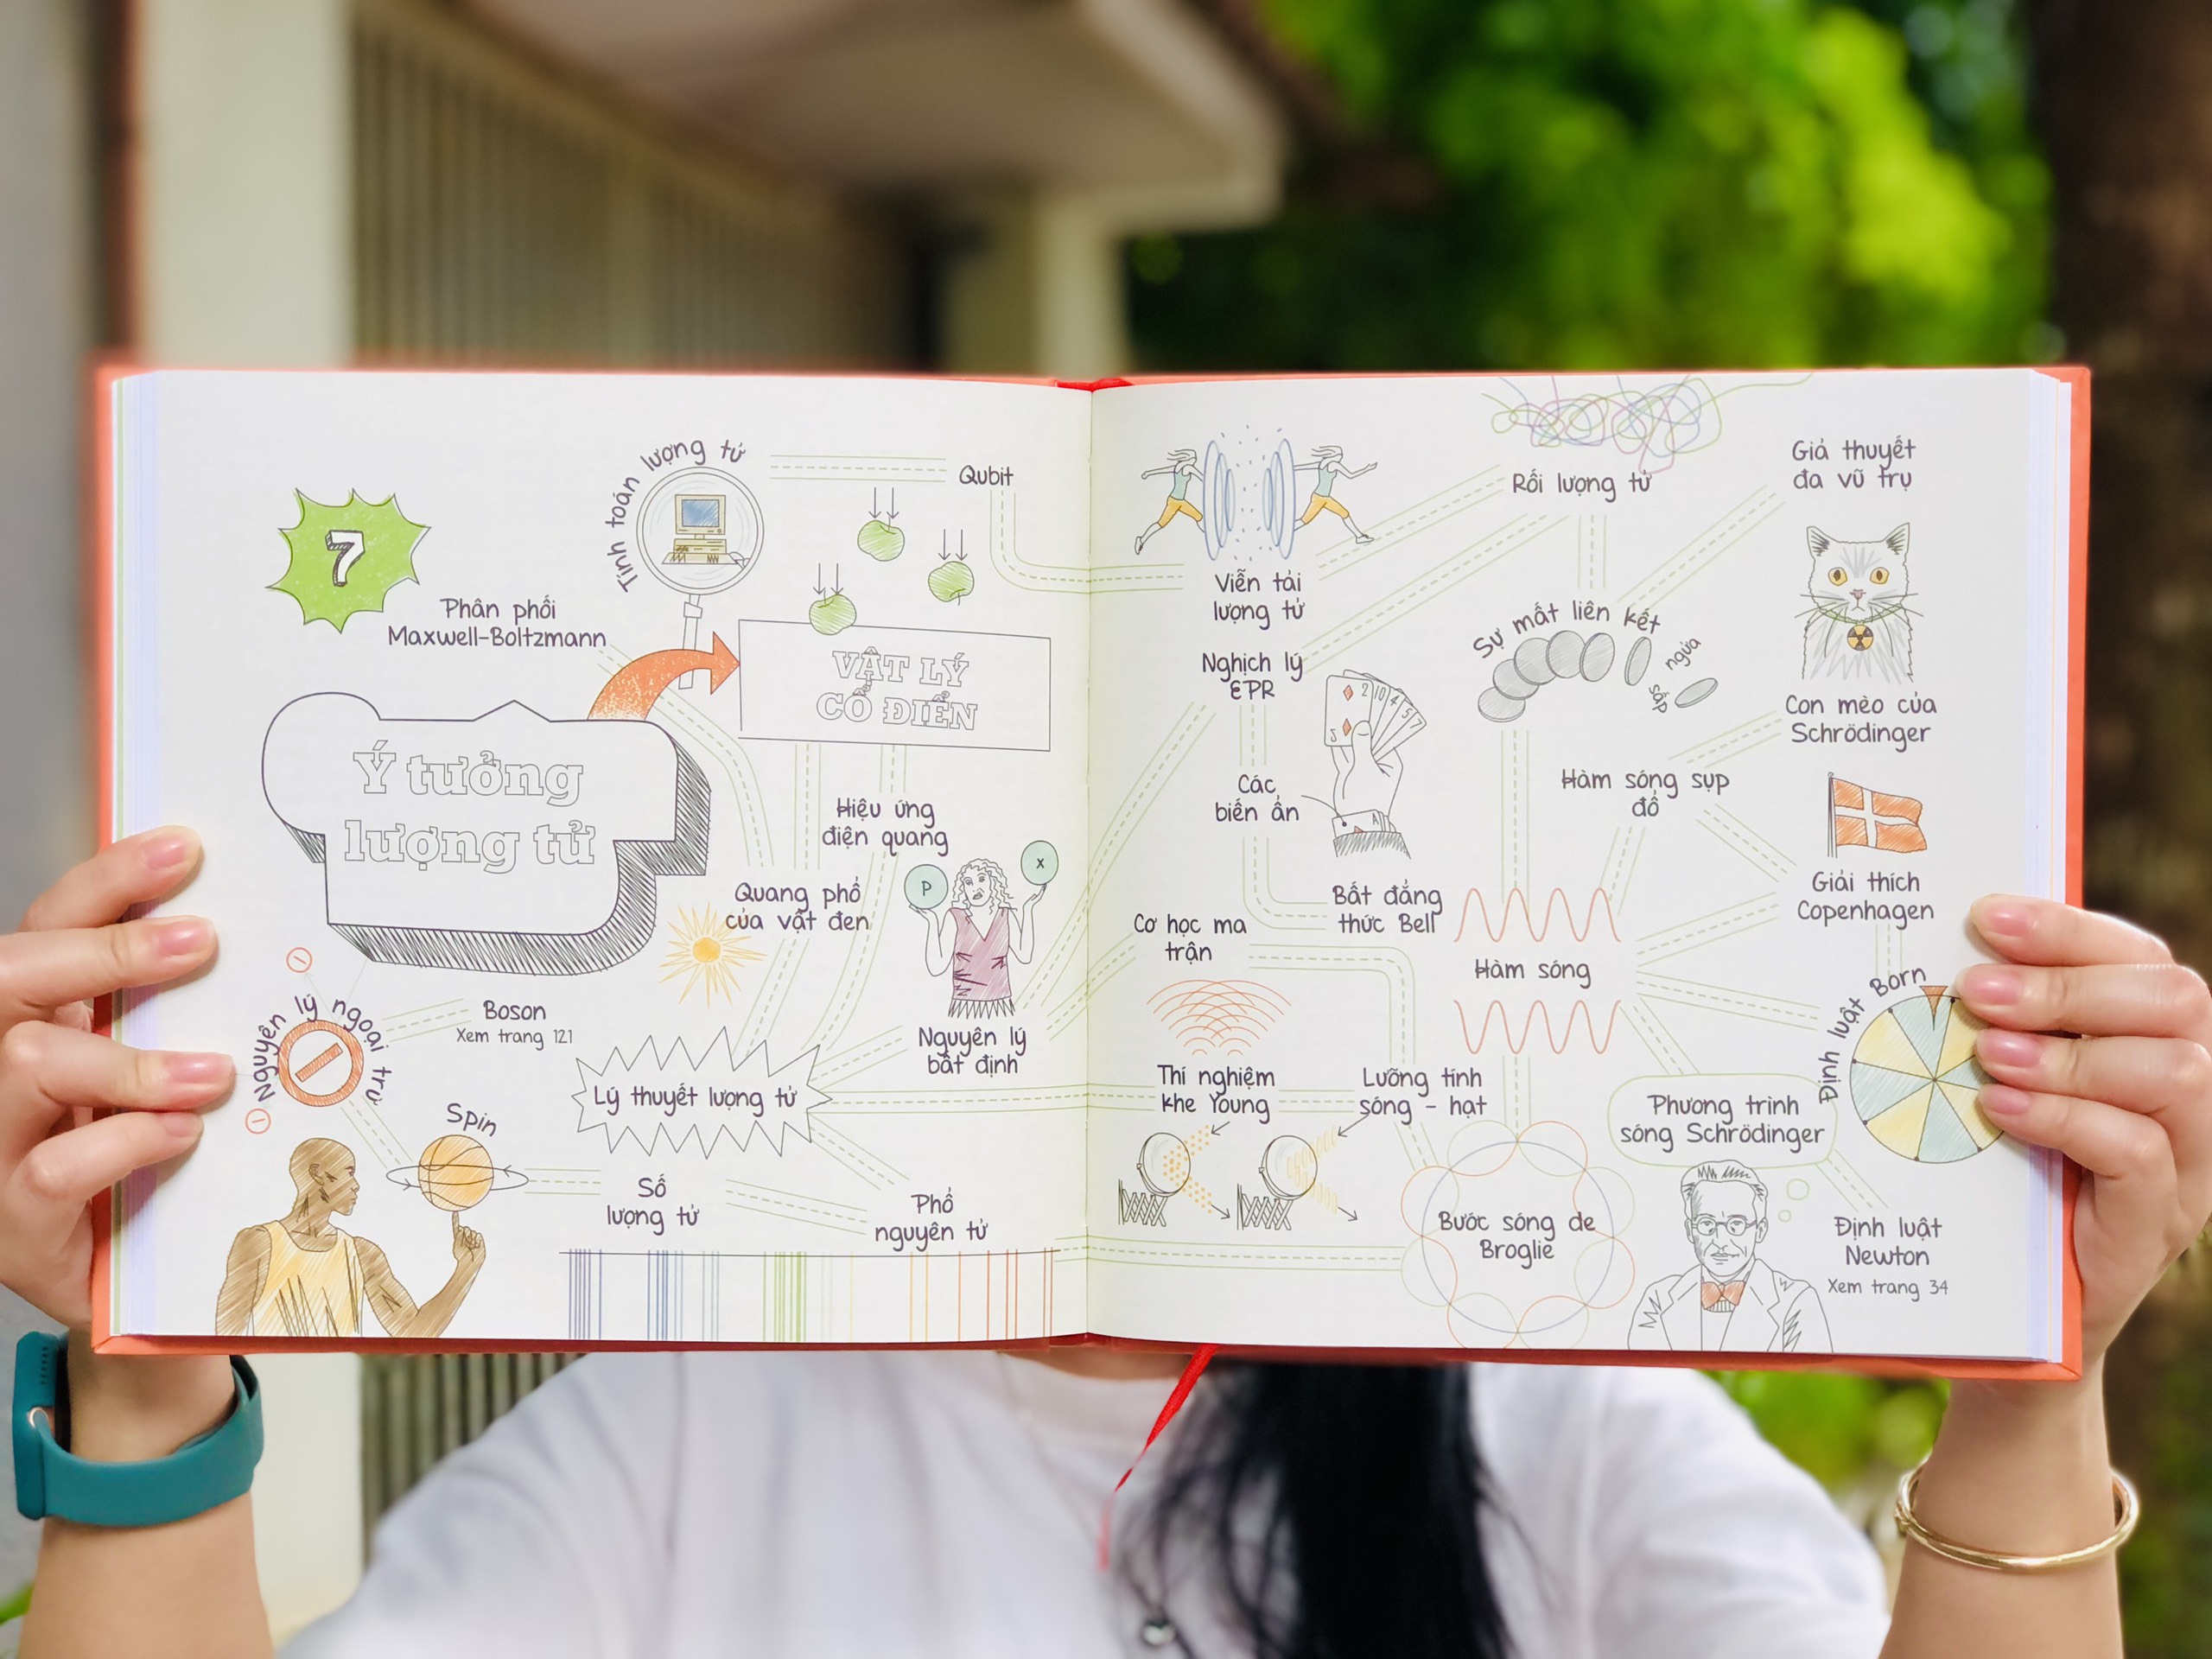 7
Tính toán lượng tử
Qubit
Phân phối
Maxwell-Boltzmann
VẬT LÝ
CỔ ĐIỂN
Ý tưởng
lượng tử
Hiệu ứng
điện quang
P
X
Quang phổ
của vật đen
Nguyên lý ngoại trừ
Boson
Xem trang 121
Nguyên lý
bất định
Lý thuyết lượng tử
Spin
Số
lượng tử
Phổ
nguyên tử
Rối lượng tử
Giả thuyết
đa vũ trụ
Viễn tải
lượng tử
Sự mất liên kết
ngửa
sấp
Nghịch lý
EPR
2
10
4
5
7
Con mèo của
Schrödinger
Các
biến ẩn
A
Hàm sóng sụp
đổ
Bất đẳng
thức Bell
Giải thích
Copenhagen
Cơ học ma
trận
Hàm sóng
Định luật Born
Thí nghiệm
khe Young
Lưỡng tính
sóng - hạt
Phương trình
sóng Schrödinger
Bước sóng de
Broglie
Định luật
Newton
Xem trang 34